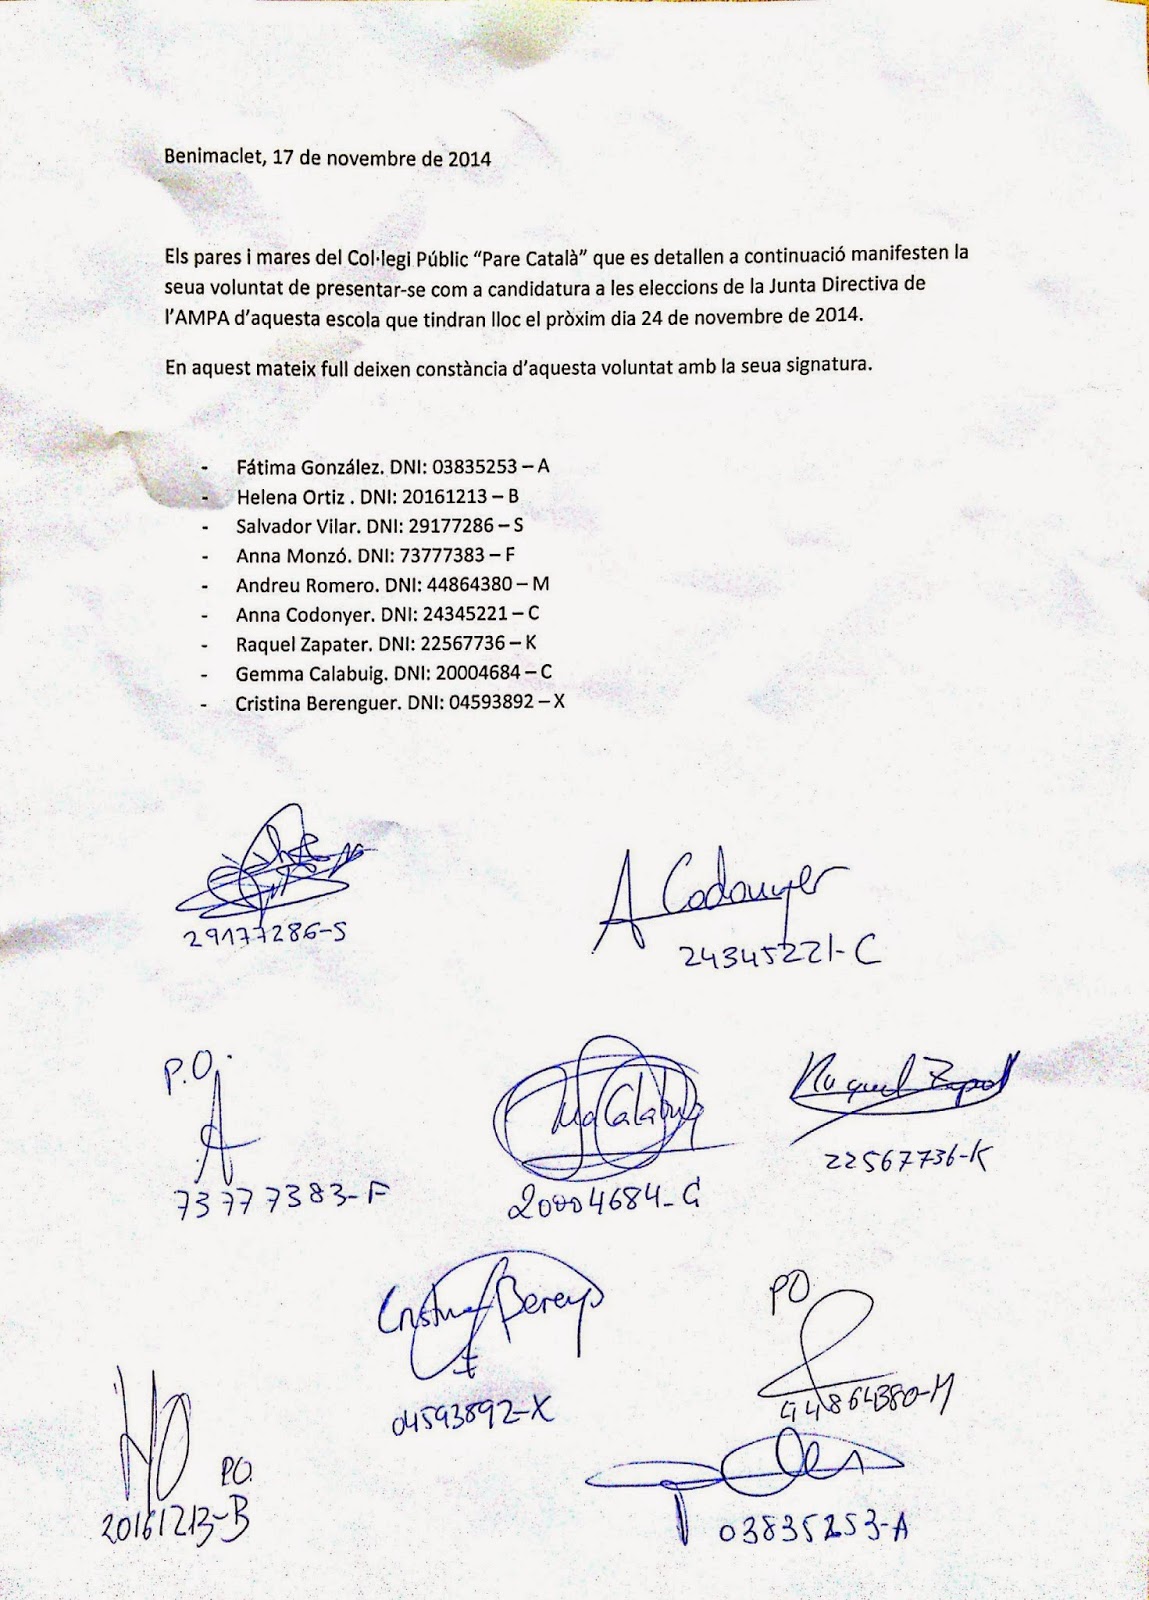 Benimaclet, 17 de novembre de 2014
Els pares i mares del Col·legi Públic “Pare Català” que es detallen a continuació manifesten la
seua voluntat de presentar-se com a candidatura a les eleccions de la Junta Directiva de
l’AMPA d’aquesta escola que tindran lloc el pròxim dia 24 de novembre de 2014.
En aquest mateix full deixen constància d’aquesta voluntat amb la seua signatura.
- Fátima González. DNI: 03835253 – A
- Helena Ortiz . DNI: 20161213 – B
- Salvador Vilar. DNI: 29177286 – S
- Anna Monzó. DNI: 73777383 – F
- Andreu Romero. DNI: 44864380 – M
- Anna Codonyer. DNI: 24345221 – C
- Raquel Zapater. DNI: 22567736 – K
- Gemma Calabuig. DNI: 20004684 – C
- Cristina Berenguer. DNI: 04593892 – X
29177286-S
A Codonyer
24345221-C
P.O.
A
73777383-F
Calabuig
20004684-C
Raquel Zapat
22567736-K
Cristina Bereng
04593892-X
PO
44864380-M
HO PO.
20161213-B
03835253-A